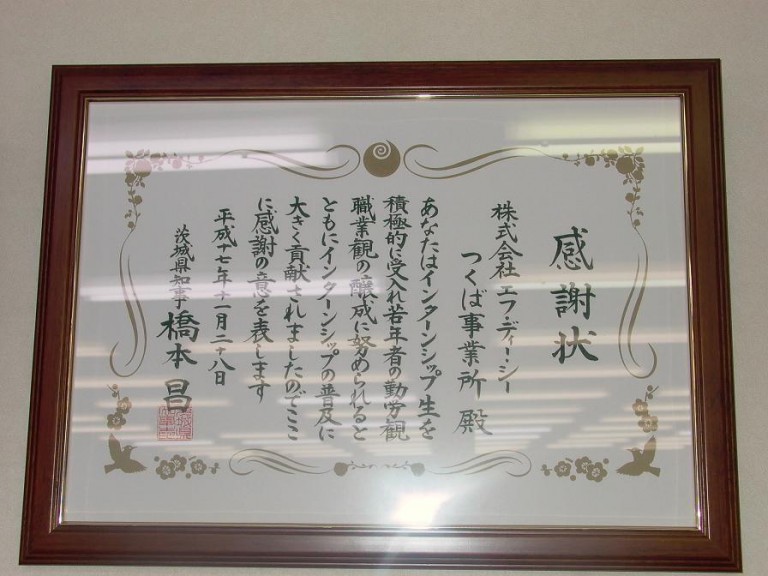 感謝状
株式会社 エフ・ディー・シー
つくば事業所 殿
あなたはインターンシップ生を
積極的に受入れ若年者の勤労観
職業観の醸成に努められると
ともにインターンシップの普及に
大きく貢献されましたのでここ
に感謝の意を表します
平成十七年十一月二十八日
茨城県知事 橋本 昌